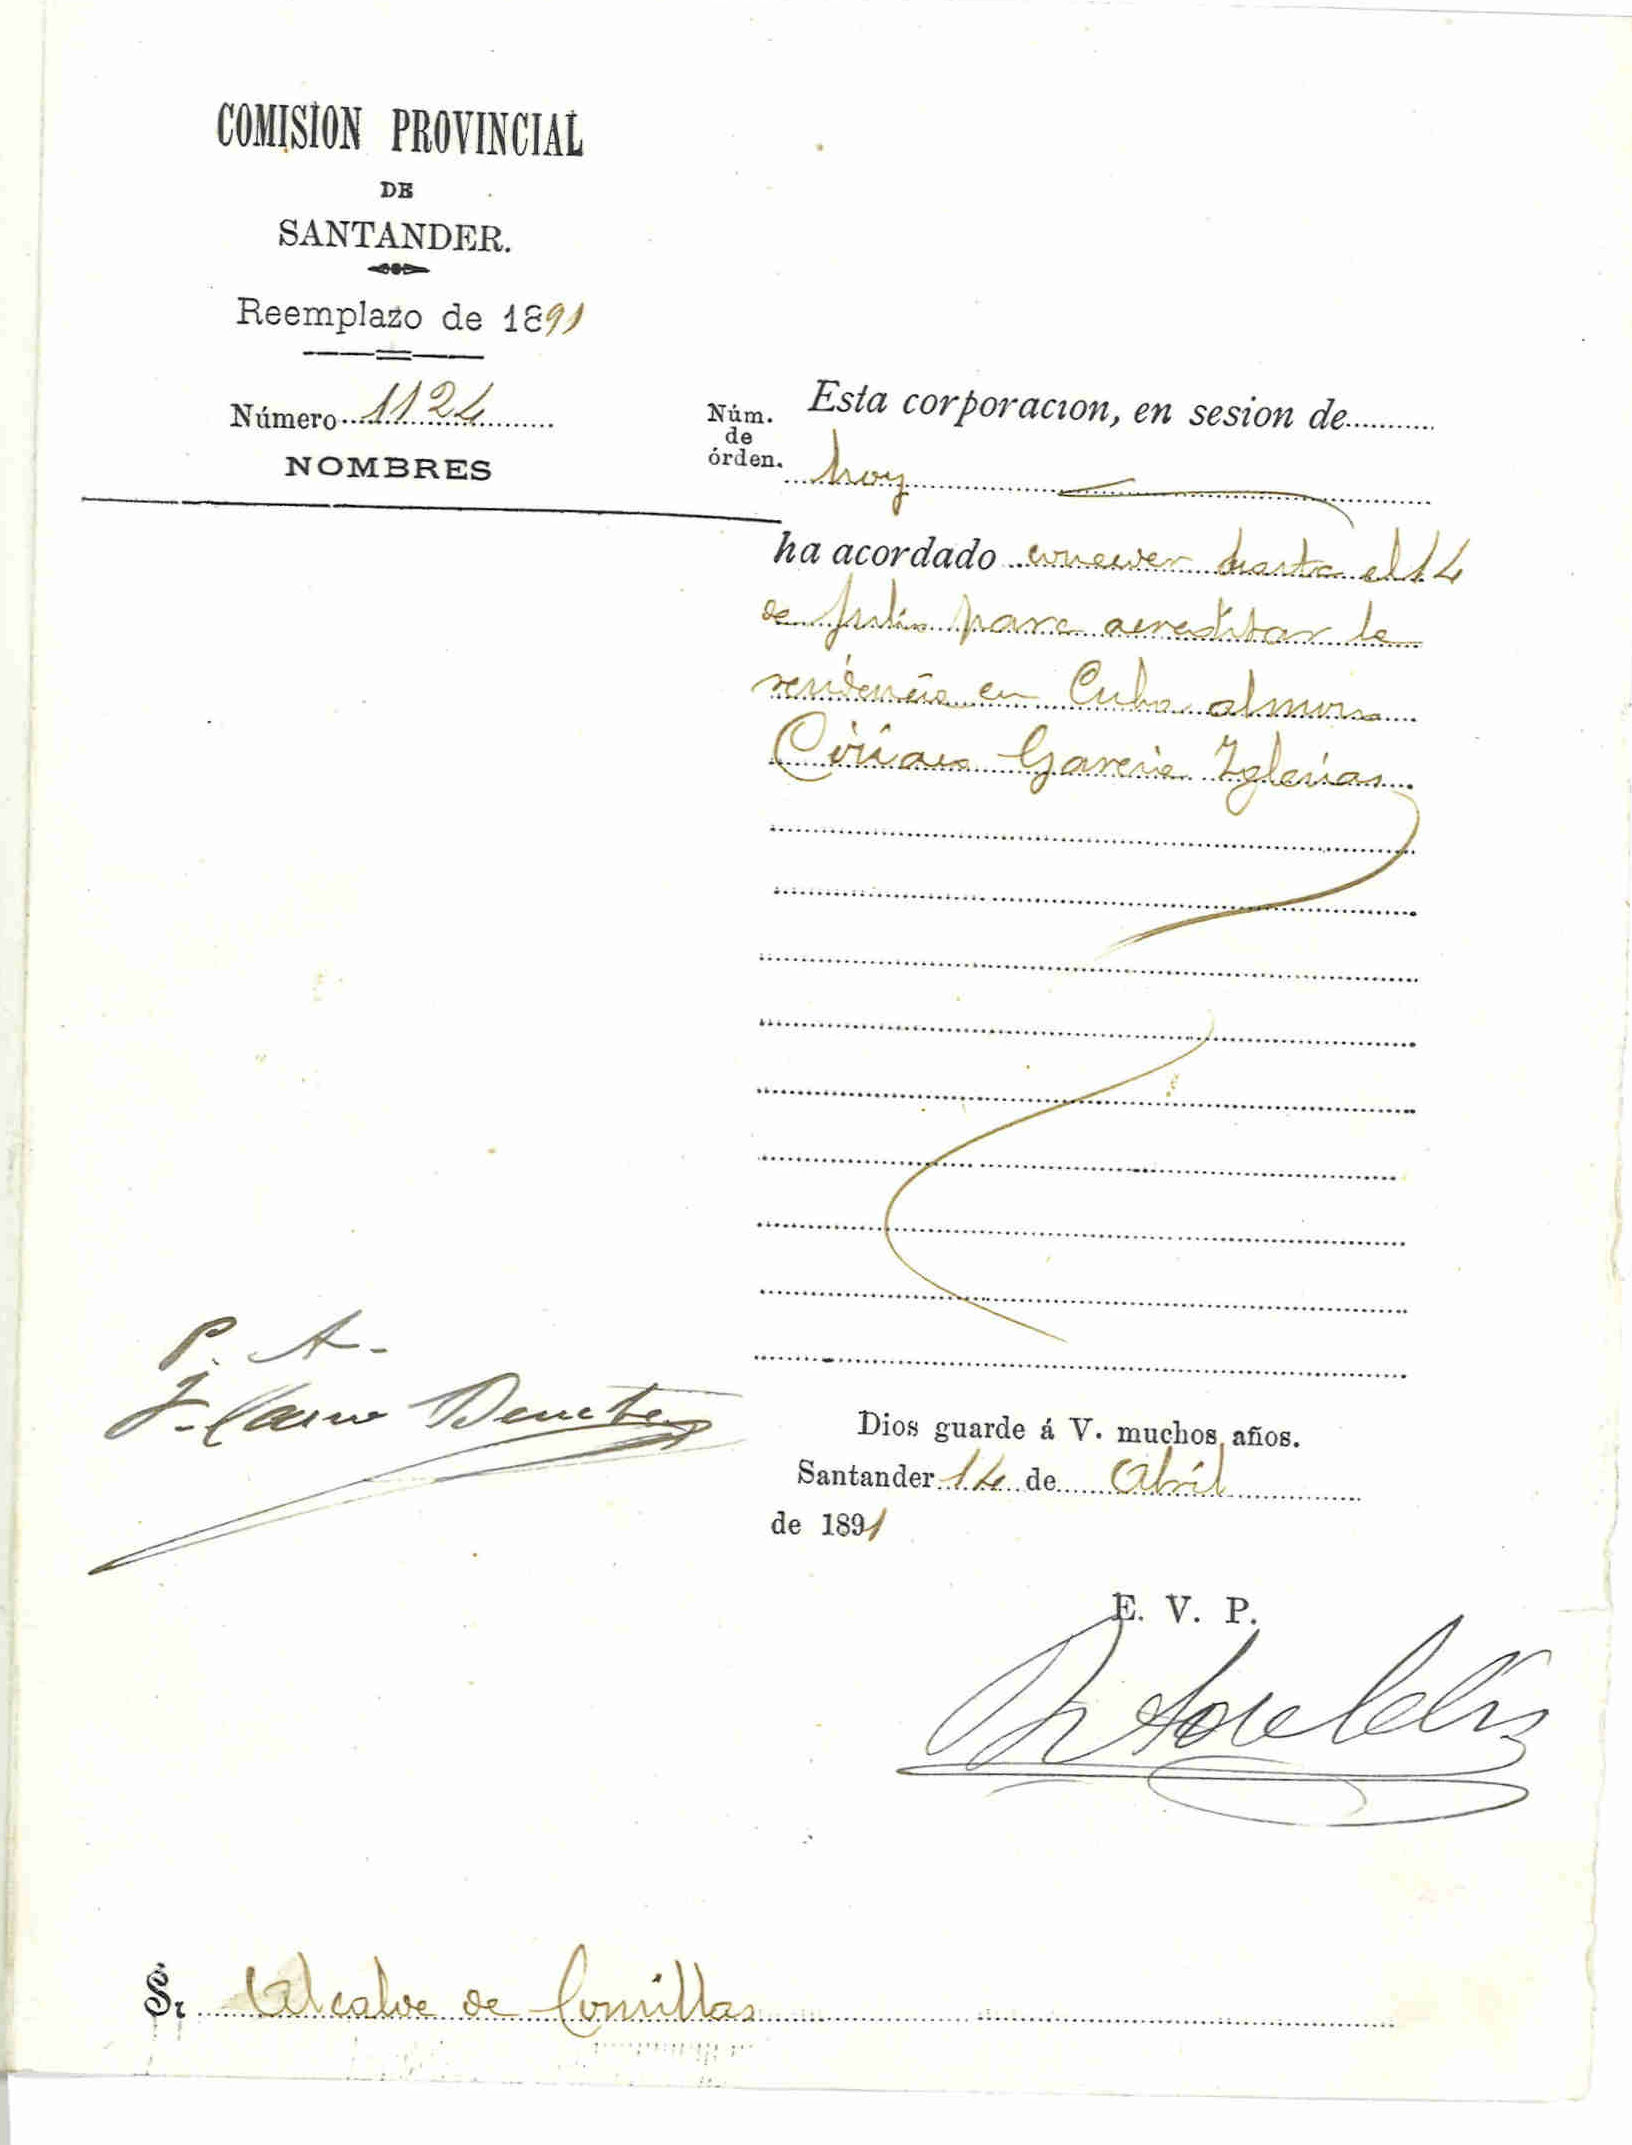 COMISION PROVINCIAL
DE
SANTANDER.
Reemplazo de 1891
Número 1124
NOMBRES
Núm.
de
órden.
Esta corporacion, en sesion de
hoy
ha acordado conceder hasta el 14
de Julio para acreditar la
residencia en Cuba al mozo
Ciriaco Garcia Iglesias
P. A.
Dios guarde á V. muchos años.
Santander 14 de Abril
de 1891
E. V. P.
Sr Alcalde de Comillas